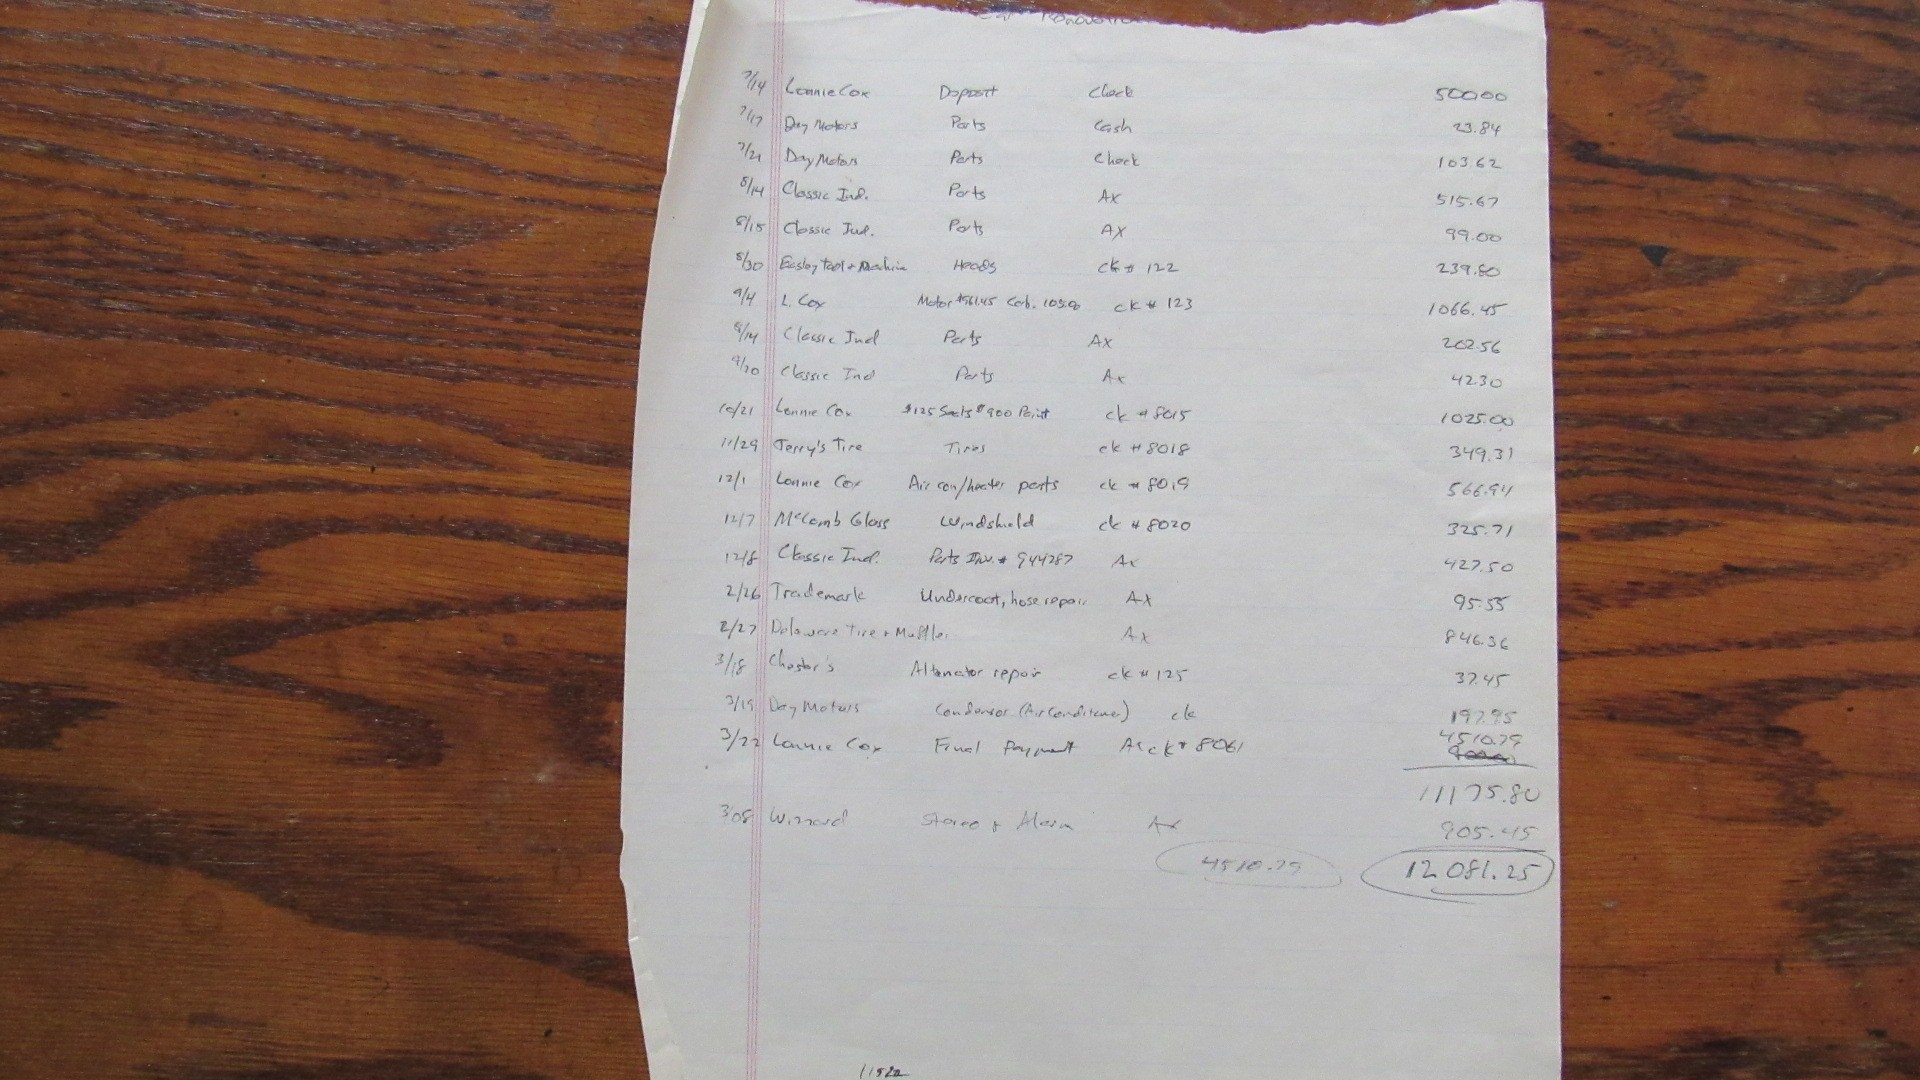 7/14 Lonnie Cox Deposit Check 500.00
7/17 Day Motors Parts Cash 23.84
7/21 Day Motors Parts Check 103.62
8/14 Classic Ind. Parts AX 515.67
8/15 Classic Ind. Parts AX 99.00
8/30 Easley Tool + Machine Heads ck # 122 239.80
9/4 L. Cox Motor $961.45 Carb. 105.00 ck # 123 1066.45
9/14 Classic Ind Parts AX 202.56
9/20 Classic Ind Parts Ax 42.30
10/21 Lonnie Cox $125 Seats $900 Paint ck # 8015 1025.00
11/29 Jerry's Tire Tires ck # 8018 349.31
12/1 Lonnie Cox Air con/heater parts ck # 8019 566.94
12/7 McComb Glass Windshield ck # 8020 325.71
12/8 Classic Ind. Parts Inv. # 944287 Ax 427.50
2/26 Trademark Undercoat, hose repair AX 95.55
2/27 Delaware Tire + Muffler Ax 846.36
3/18 Chester's Alternator repair ck # 125 37.45
3/19 Day Motors Condensor (Air Conditioner) ck 197.95
3/22 Lonnie Cox Final Payment ck # 8061 4510.79
11175.80
3/08 Wizzard Stereo + Alarm Ax 905.45
4510.79 12081.25